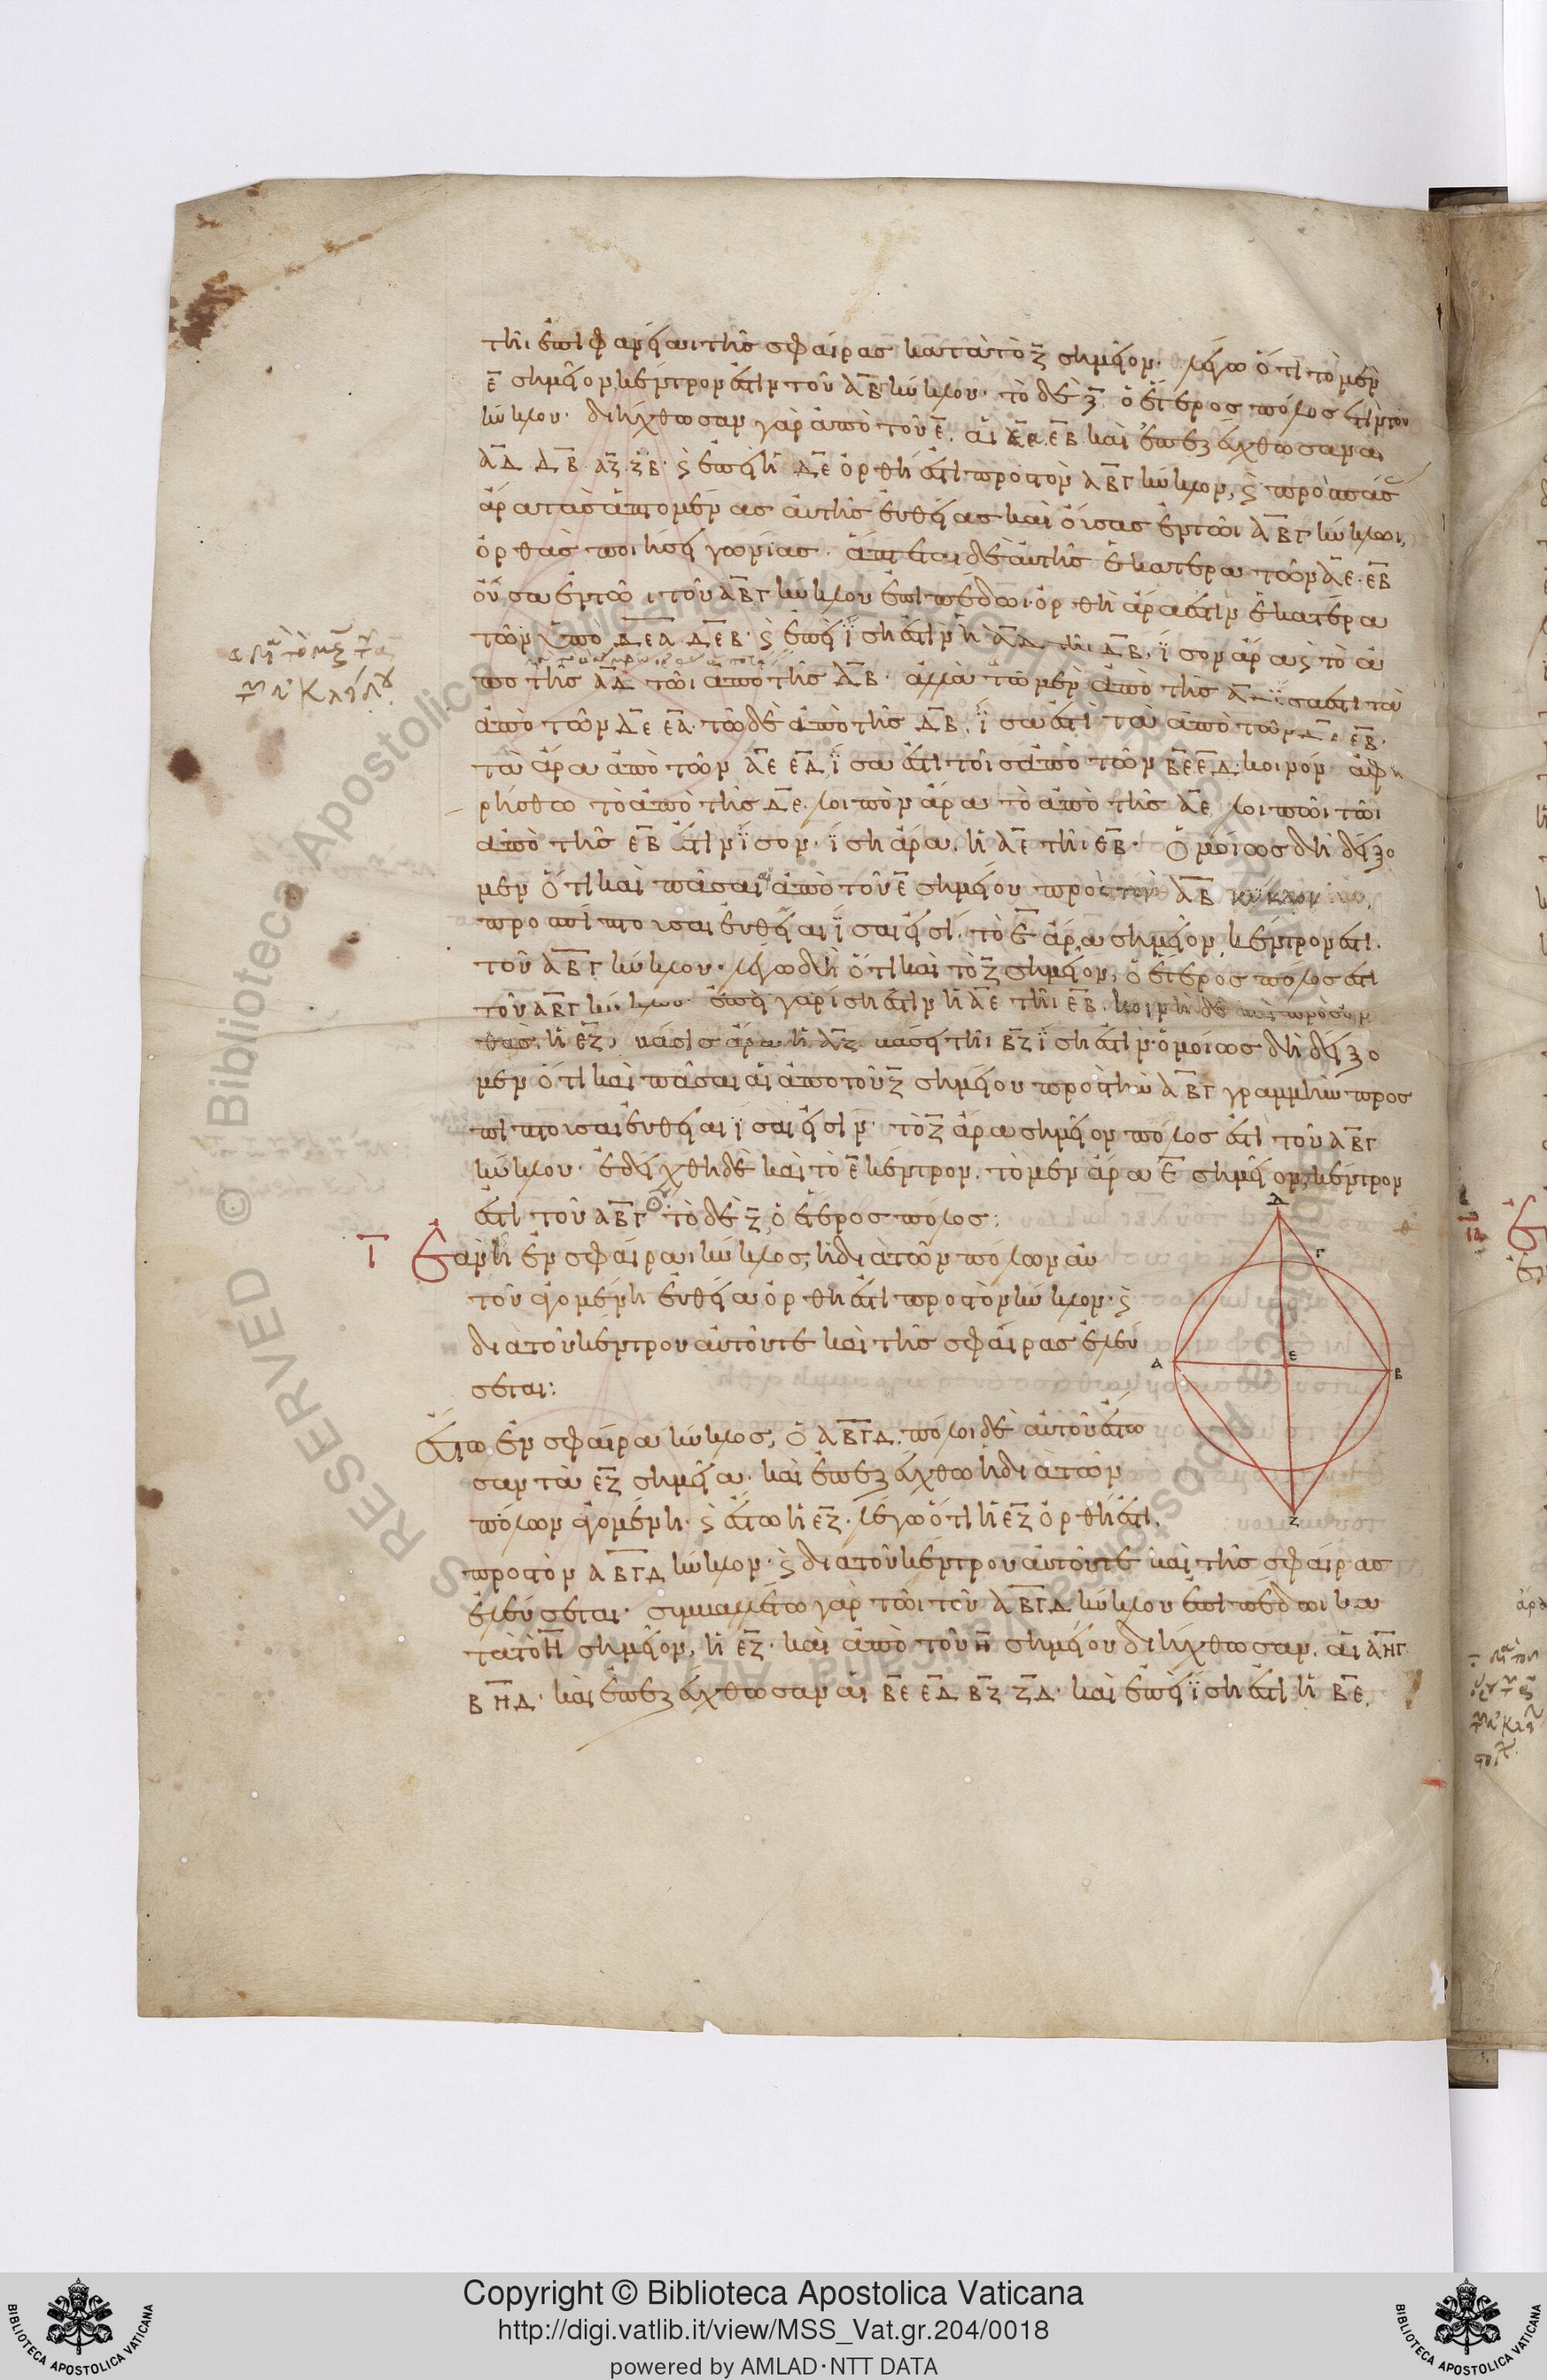 τῆι ἐπιφανείαι τῆς σφαίρας κατὰ τὸ Ζ σημεῖον· λέγω ὅτι τὸ μὲν
Ε σημεῖον κέντρον ἐστὶν τοῦ ΑΒ κύκλου· τὸ δὲ Ζ ὁ ἕτερος πόλος ἐστὶν τοῦ
κύκλου· διήχθωσαν γὰρ ἀπὸ τοῦ Ε αἱ ΕΒ καὶ ἐπεζεύχθωσαν αἱ
ΑΔ ΔΒ ΑΖ ΖΒ· καὶ ἐπεὶ ἡ ΔΕ ὀρθή ἐστι πρὸς τὸν ΑΒΓ κύκλον, καὶ πρὸς πάσας
ἄρα τὰς ἁπτομένας αὐτῆς εὐθείας καὶ οὔσας ἐν τῶι ΑΒΓ κύκλωι,
ὀρθὰς ποιήσει γωνίας· ἅπτεται δὲ αὐτῆς ἑκατέρα τῶν ΑΕ ΕΒ
οὖσα ἐν τῶι τοῦ ΑΒΓ κύκλου ἐπιπέδωι· ὀρθὴ ἄρα ἐστὶν ἑκατέρα
τῶν ὑπὸ ΔΕΑ ΔΕΒ· καὶ ἐπεὶ ἴση ἐστὶν ἡ ΑΔ τῆι ΔΒ, ἴσον ἄρα καὶ τὸ ἀ
πὸ τῆς ΑΔ τῶι ἀπὸ τῆς ΔΒ· ἀλλὰ τῶ μὲν ἀπὸ τῆς ΑΔ ἴσα ἐστὶ τὰ
ἀπὸ τῶν ΔΕ ΕΑ· τῶ δὲ ἀπὸ τῆς ΔΒ, ἴσα ἐστὶ τὰ ἀπὸ τῶν ΔΕ ΕΒ·
τὰ ἄρα ἀπὸ τῶν ΑΕ ΕΔ ἴσα ἐστὶ τοῖς ἀπὸ τῶν ΒΕ ΕΔ· κοινὸν ἀφη
ρήσθω τὸ ἀπὸ τῆς ΔΕ· λοιπὸν ἄρα τὸ ἀπὸ τῆς ΑΕ λοιπῶι τῶι
ἀπὸ τῆς ΕΒ ἐστὶν ἴσον· ἴση ἄρα ἡ ΑΕ τῆι ΕΒ· ὁμοίως δὴ δείξο
μεν ὅτι καὶ πᾶσαι αἱ ἀπὸ τοῦ Ε σημείου πρὸς τὸν ΑΒ κύκλον
προσπίπτουσαι εὐθεῖαι ἴσαι εἰσί· τὸ Ε ἄρα σημεῖον κέντρον ἐστι
τοῦ ΑΒΓ κύκλου· λέγω δὴ ὅτι καὶ τὸ Ζ σημεῖον, ὁ ἕτερος πόλος ἐστὶ
τοῦ ΑΒΓ κύκλου· ἐπεὶ γὰρ ἴση ἐστὶν ἡ ΑΕ τῆι ΕΒ, κοινὴ δὲ καὶ πρὸς ὀρ
θὰς ἡ ΕΖ, βάσις ἄρα ἡ ΑΖ βάσει τῆι ΒΖ ἴση ἐστίν· ὁμοίως δὴ δείξο
μεν ὅτι καὶ πᾶσαι αἱ ἀπὸ τοῦ Ζ σημείου πρὸς τὴν ΑΒΓ γραμμὴν προσ
πίπτουσαι εὐθεῖαι ἴσαι εἰσίν· τὸ Ζ ἄρα σημεῖον πόλος ἐστὶ τοῦ ΑΒΓ
κύκλου· ἐδείχθη δὲ καὶ τὸ Ε κέντρον· τὸ μὲν ἄρα Ε σημεῖον, κέντρον
ἐστὶ τοῦ ΑΒΓ τὸ δὲ Ζ, ὁ ἕτερος πόλος:
Ι Ἐὰν ἦ ἐν σφαίραι κύκλος, ἡ διὰ τῶν πόλων αὐ
τοῦ ἀγομένη εὐθεῖα ὀρθή ἐστι πρὸς τὸν κύκλον· καὶ
διὰ τοῦ κέντρου αὐτοῦ τε καὶ τῆς σφαίρας ἐλεύ
σεται:
Ἔστω ἐν σφαίρα κύκλος, ὁ ΑΒΓΔ, πόλοι δὲ αὐτοῦ ἔστω
σαν τὰ ΕΖ σημεῖα· καὶ ἐπεζεύχθω ἡ διὰ τῶν
πόλων ἀγομένη· καὶ ἔστω ἡ ΕΖ· λέγω ὅτι ἡ ΕΖ ὀρθή ἐστι
πρὸς τὸν ΑΒΓΔ κύκλον· καὶ διὰ τοῦ κέντρου αὐτοῦ τε καὶ τῆς σφαίρας
ἐλεύσεται· συμβαλλέτω γὰρ τῶι τοῦ ΑΒΓΔ κύκλου ἐπιπέδωι κα
τὰ τὸ Η σημεῖον, ἡ ΕΖ· καὶ ἀπὸ τοῦ Η σημείου διήχθωσαν, αἱ ΑΗΓ
ΒΗΔ· καὶ ἐπεζεύχθωσαν αἱ ΒΕ ΕΔ ΒΖ ΖΔ· καὶ ἐπεὶ ἴση ἐστὶ ἡ ΒΕ
Δ
Γ
Α
Ε
Β
Ζ
© Biblioteca Apostolica Vaticana
Copyright © Biblioteca Apostolica Vaticana
http://digi.vatlib.it/view/MSS_Vat.gr.204/0018
powered by AMLAD·NTT DATA
BIBLIOTECA APOSTOLICA VATICANA
BIBLIOTECA APOSTOLICA VATICANA